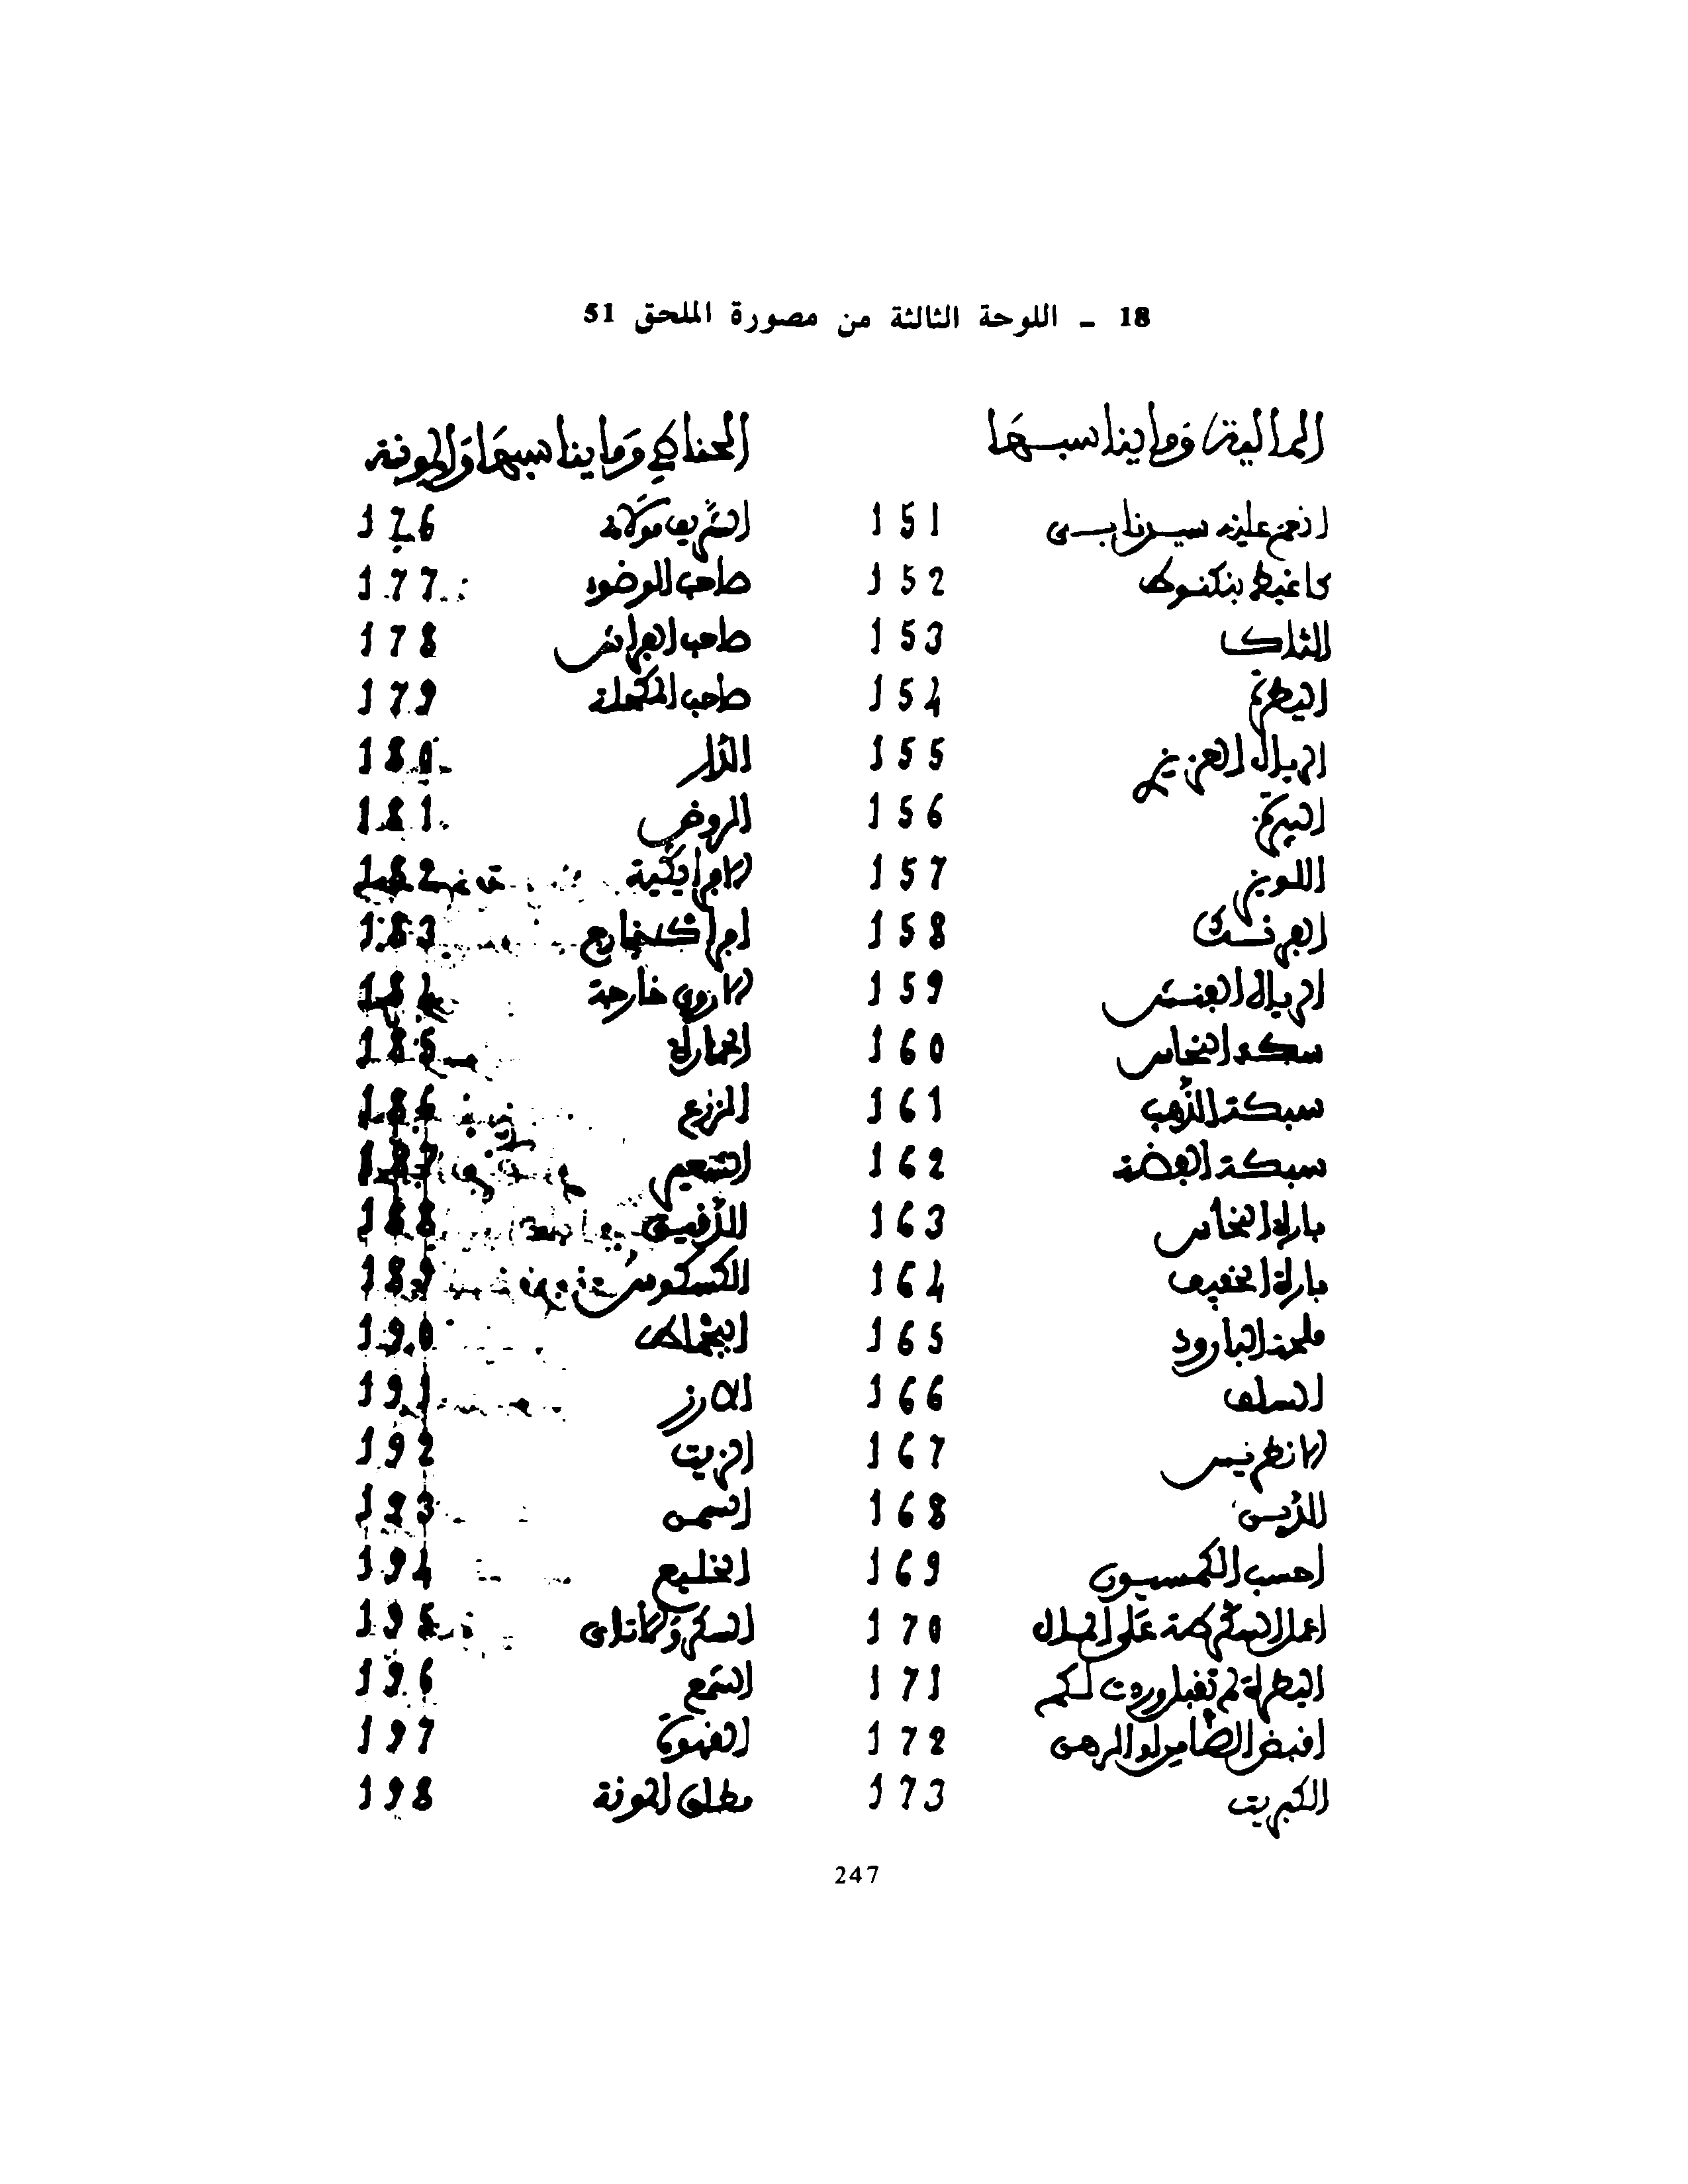 18 ـ اللوحة الثالثة من مصورة الملحق 51
المالية وما يناسبها
انعم عليه سيدنا بـ 151
كاغيط بنكنوط 152
153
154
الريال العزيزي 155
156
اللويز 157
الفرنك 158
الريال الفنشر 159
سكة النحاس 160
سبكة الذهب 161
سبكة الفضة 162
بارة النحاس 163
بارة الخفيف 164
ملحة البارود 165
السلف 166
الانطريس 167
الدين 168
احسب الكمسيون 169
اعمل السكرطة على المال 170
لم تقبل وردت لكم 171
اقبض الضامن او الرهن 172
الكبريت 173
الحناطي وما يناسبها والمونة
الشريف مولاه 176
صاحب الوضوء 177
صاحب الفراش 178
صاحب المكحلة 179
الدار 180
الروض 181
182
183
الاروى خارجة 184
185
الزرع 186
الشعير 187
الدقيق 188
الكسكوس 189
البجماط 190
الارز 191
الزيت 192
السمن 193
الخليع 194
السكر والاتاى 195
الشمع 196
القهوة 197
مطلق المونة 198
247